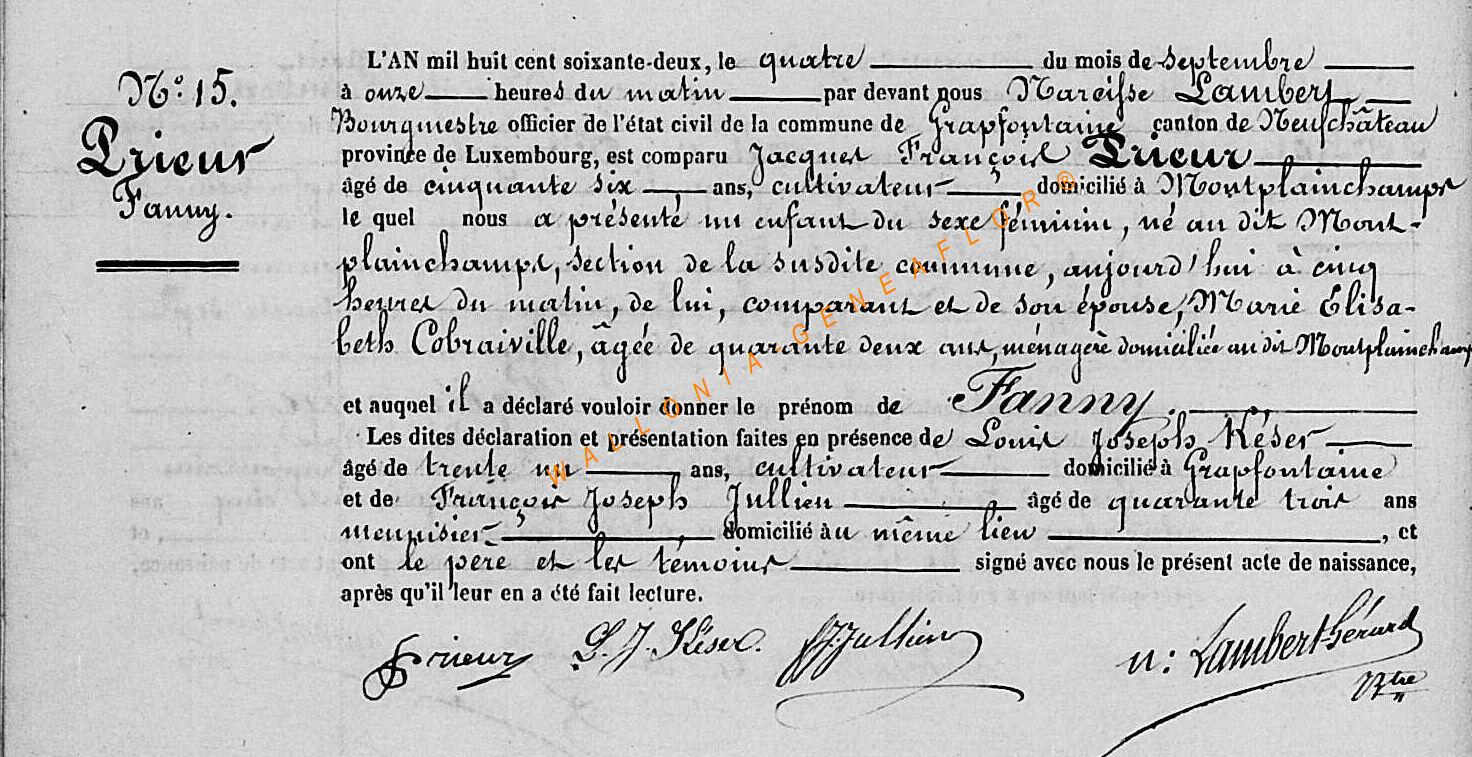 N° 15.
Prieur
Fanny.
L'AN mil huit cent soixante-deux, le quatre du mois de septembre
à onze heures du matin par devant nous Narcisse Lambert
Bourgmestre officier de l'état civil de la commune de Grapfontaine canton de Neufchâteau
province de Luxembourg, est comparu Jacques François Prieur
âgé de cinquante six ans, cultivateur domicilié à Montplainchamps
le quel nous a présenté un enfant du sexe féminin, né au dit Mont-
plainchamps, section de la susdite commune, aujourd'hui à cinq
heures du matin, de lui, comparant et de son épouse, Marie Elisa-
beth Cobraiville, âgée de quarante deux ans, ménagère domiciliée au dit Montplainchamps
et auquel il a déclaré vouloir donner le prénom de Fanny.
Les dites déclaration et présentation faites en présence de Louis Joseph Késer
âgé de trente un ans, cultivateur domicilié à Grapfontaine
et de François Joseph Jullien âgé de quarante trois ans
meunisier, domicilié au même lieu, et
ont le père et les témoins signé avec nous le présent acte de naissance,
après qu'il leur en a été fait lecture.
Prieur L. J. Késer. FJJullien n: Lambert Gérard
Btre
WALLONIA-GENEAFLOR®